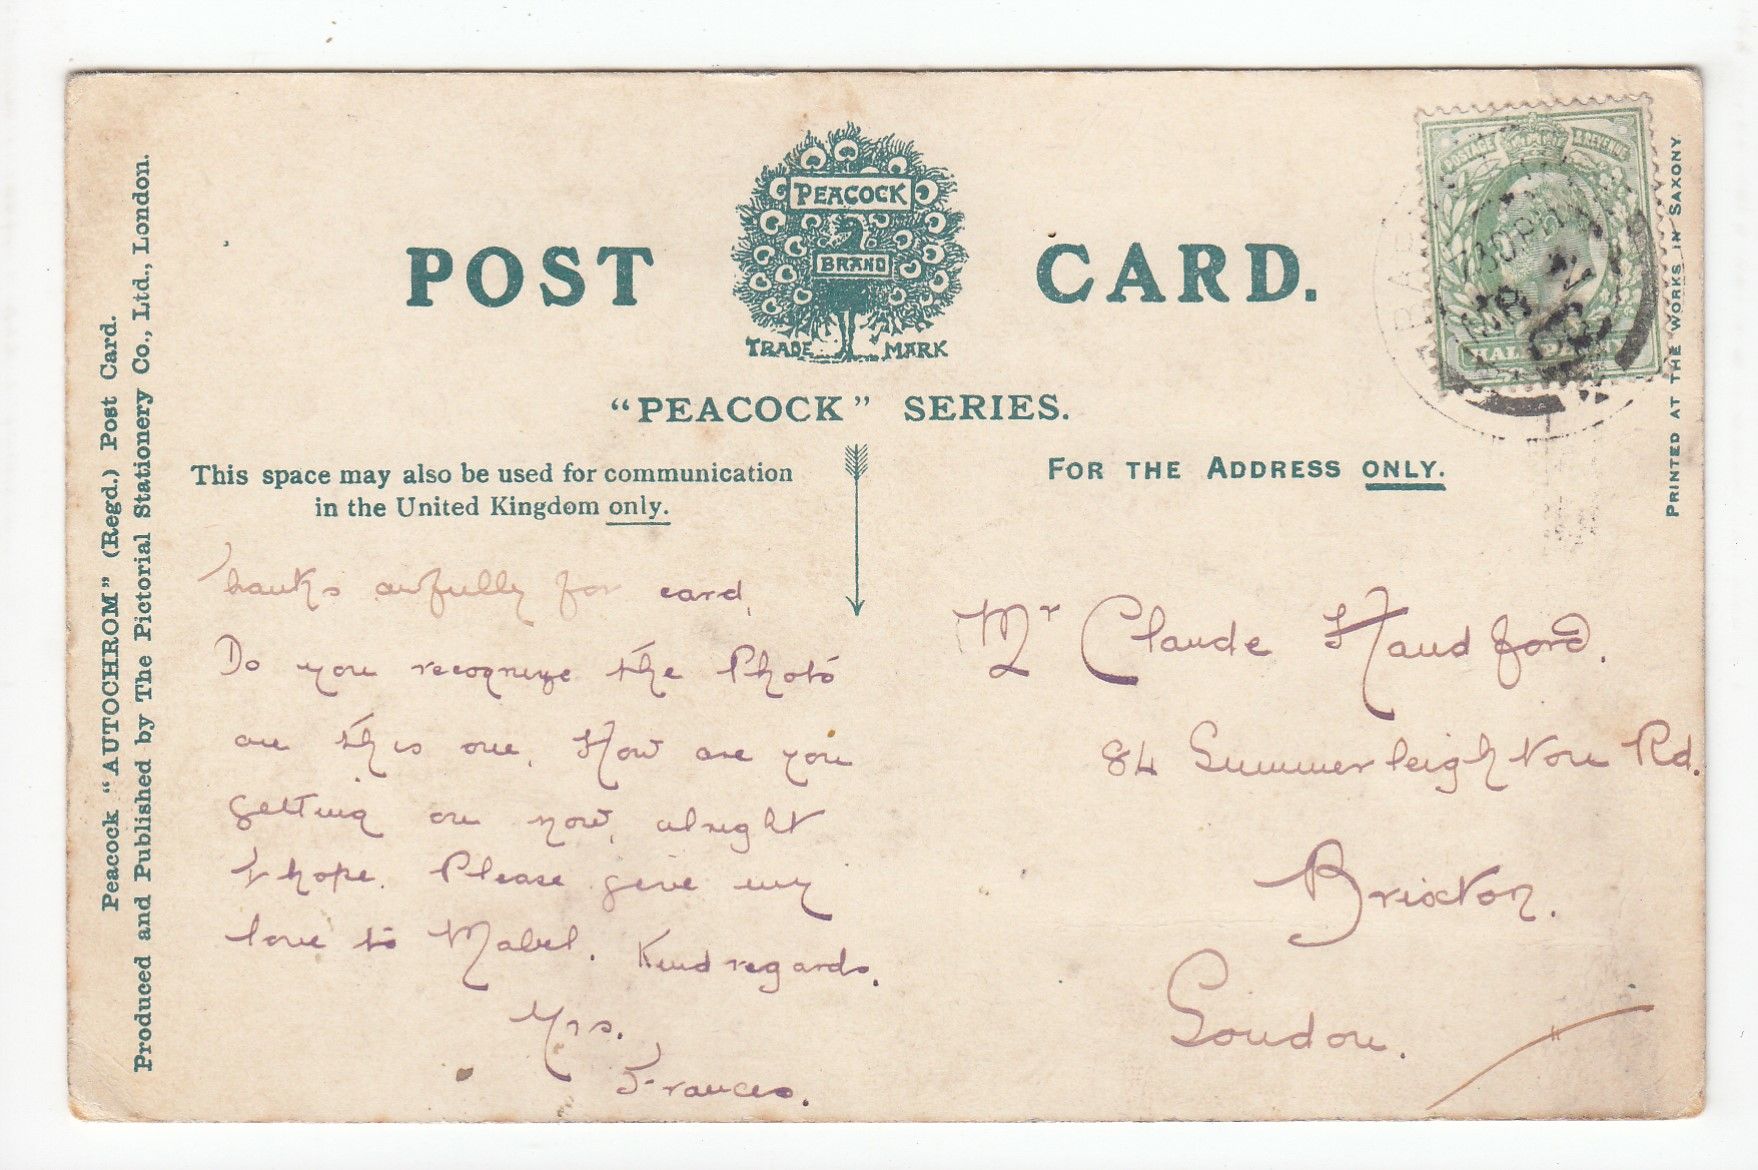 PEACOCK
BRAND
TRADE MARK
POST CARD.
"PEACOCK" SERIES.
This space may also be used for communication
in the United Kingdom only.
FOR THE ADDRESS ONLY.
Peacock "AUTOCHROM" (Regd.) Post Card.
Produced and Published by The Pictorial Stationery Co., Ltd., London.
PRINTED AT THE WORKS IN SAXONY
POSTAGE & REVENUE
HALFPENNY
7.30PM
MR
Thanks awfully for card,
Do you recognize the Photo
on this one. How are you
getting on now, alright
I hope. Please give my
love to Mabel. Kind regards.
Yrs.
Frances.
Mr Claude Handford.
84 Summerleighton Rd.
Brixton.
London.